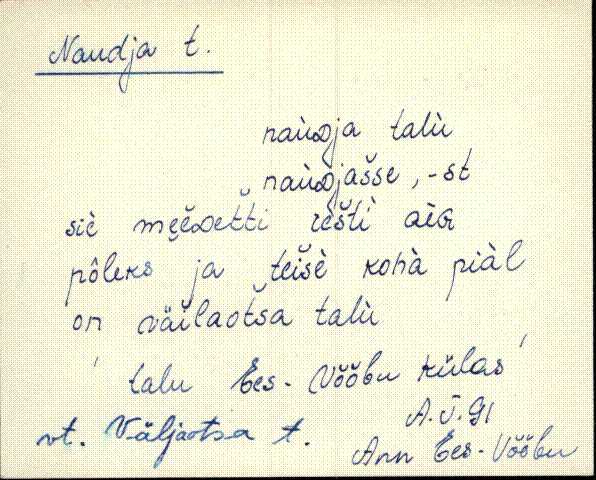 Naudja t.
naùᴅja talù
naùᴅjašse, -st
siè mĕĕᴅetti ièsti aèɢ
pôleks ja teisè kohà piàl
on väĭlaotsa talù
' talu Ees-Võõbu külas '
A.T.91
vt. Väljaotsa t.
Ann Ees-Võõbu